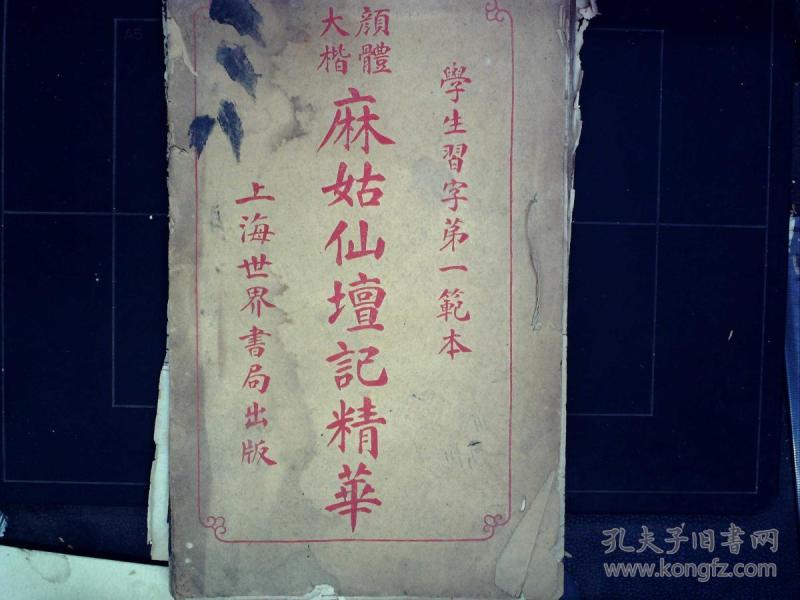 學生習字第一範本
顏體
大楷
麻姑仙壇記精華
上海世界書局出版
A5
孔夫子旧书网
www.kongfz.com